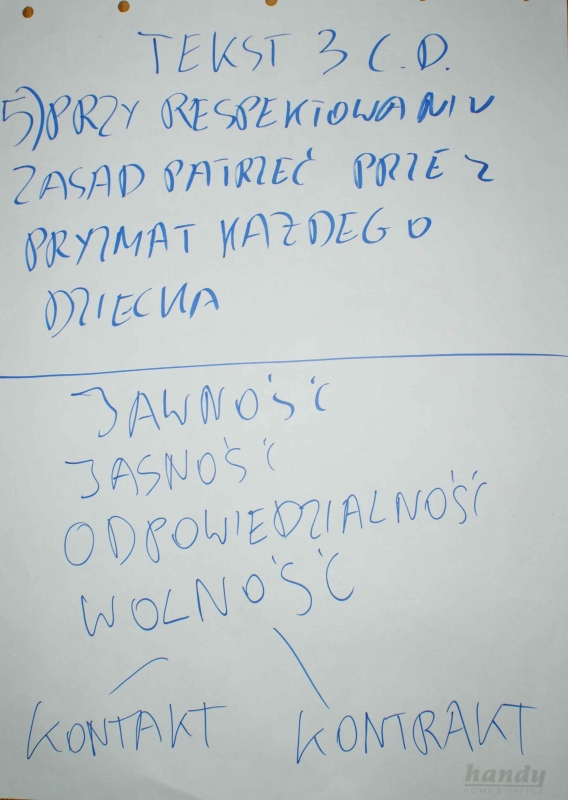 TEKST 3 C.D.
5) PRZY RESPEKTOWANIU
ZASAD PATRZEĆ PRZEZ
PRYZMAT KAŻDEGO
DZIECKA
JAWNOŚĆ
JASNOŚĆ
ODPOWIEDZIALNOŚĆ
WOLNOŚĆ
KONTAKT KONTRAKT
handy
HOME & OFFICE